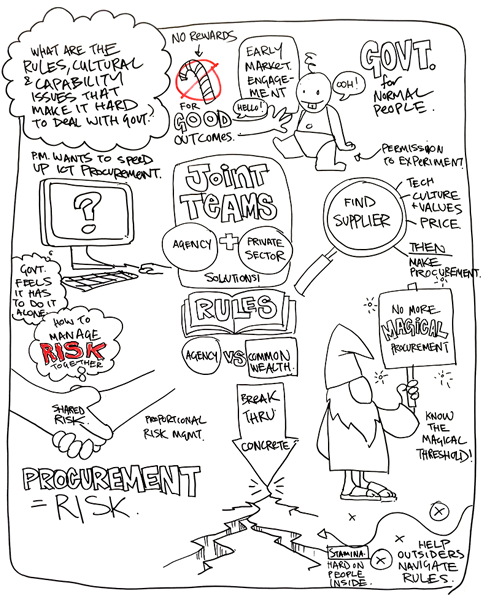 WHAT ARE THE
RULES, CULTURAL
& CAPABILITY
ISSUES THAT
MAKE IT HARD
TO DEAL WITH GOVT?
NO REWARDS
FOR
GOOD
OUTCOMES.
EARLY
MARKET
ENGAGE-
MENT
HELLO!
OOH!
GOVT.
for
NORMAL
PEOPLE.
PERMISSION
TO EXPERIMENT.
P.M. WANTS TO SPEED
UP ICT PROCUREMENT.
?
JOINT
TEAMS
AGENCY + PRIVATE
SECTOR
SOLUTIONS!
FIND
SUPPLIER
TECH
CULTURE
+ VALUES
PRICE
THEN
MAKE
PROCUREMENT.
GOVT.
FEELS
IT HAS
TO DO IT
ALONE.
RULES
AGENCY VS COMMON
WEALTH.
HOW TO
MANAGE
RISK
TOGETHER
NO MORE
MAGICAL
PROCUREMENT
SHARED
RISK.
PROPORTIONAL
RISK MGMT.
BREAK
THRU
CONCRETE!
KNOW
THE
MAGICAL
THRESHOLD!
PROCUREMENT
= RISK.
STAMINA:
HARD ON
PEOPLE
INSIDE.
HELP
OUTSIDERS
NAVIGATE
RULES.